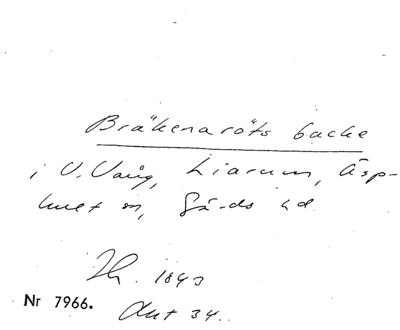 Bräkenaröts backe
i V. Vång, Liarum, Äsp-
huet sn, Gärds hd
Th. 1843
Nr 7966.
Akt 34.